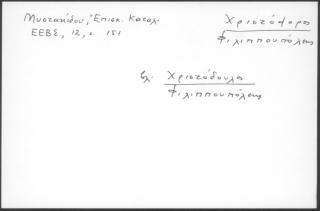 Μυστακίδου, Ἐπισκ. Καταλ.
ΕΕΒΣ, 12, σ 151
Χριστόφορος
Φιλιππουπόλεως
βλ. Χριστόδουλος
Φιλιππουπόλεως